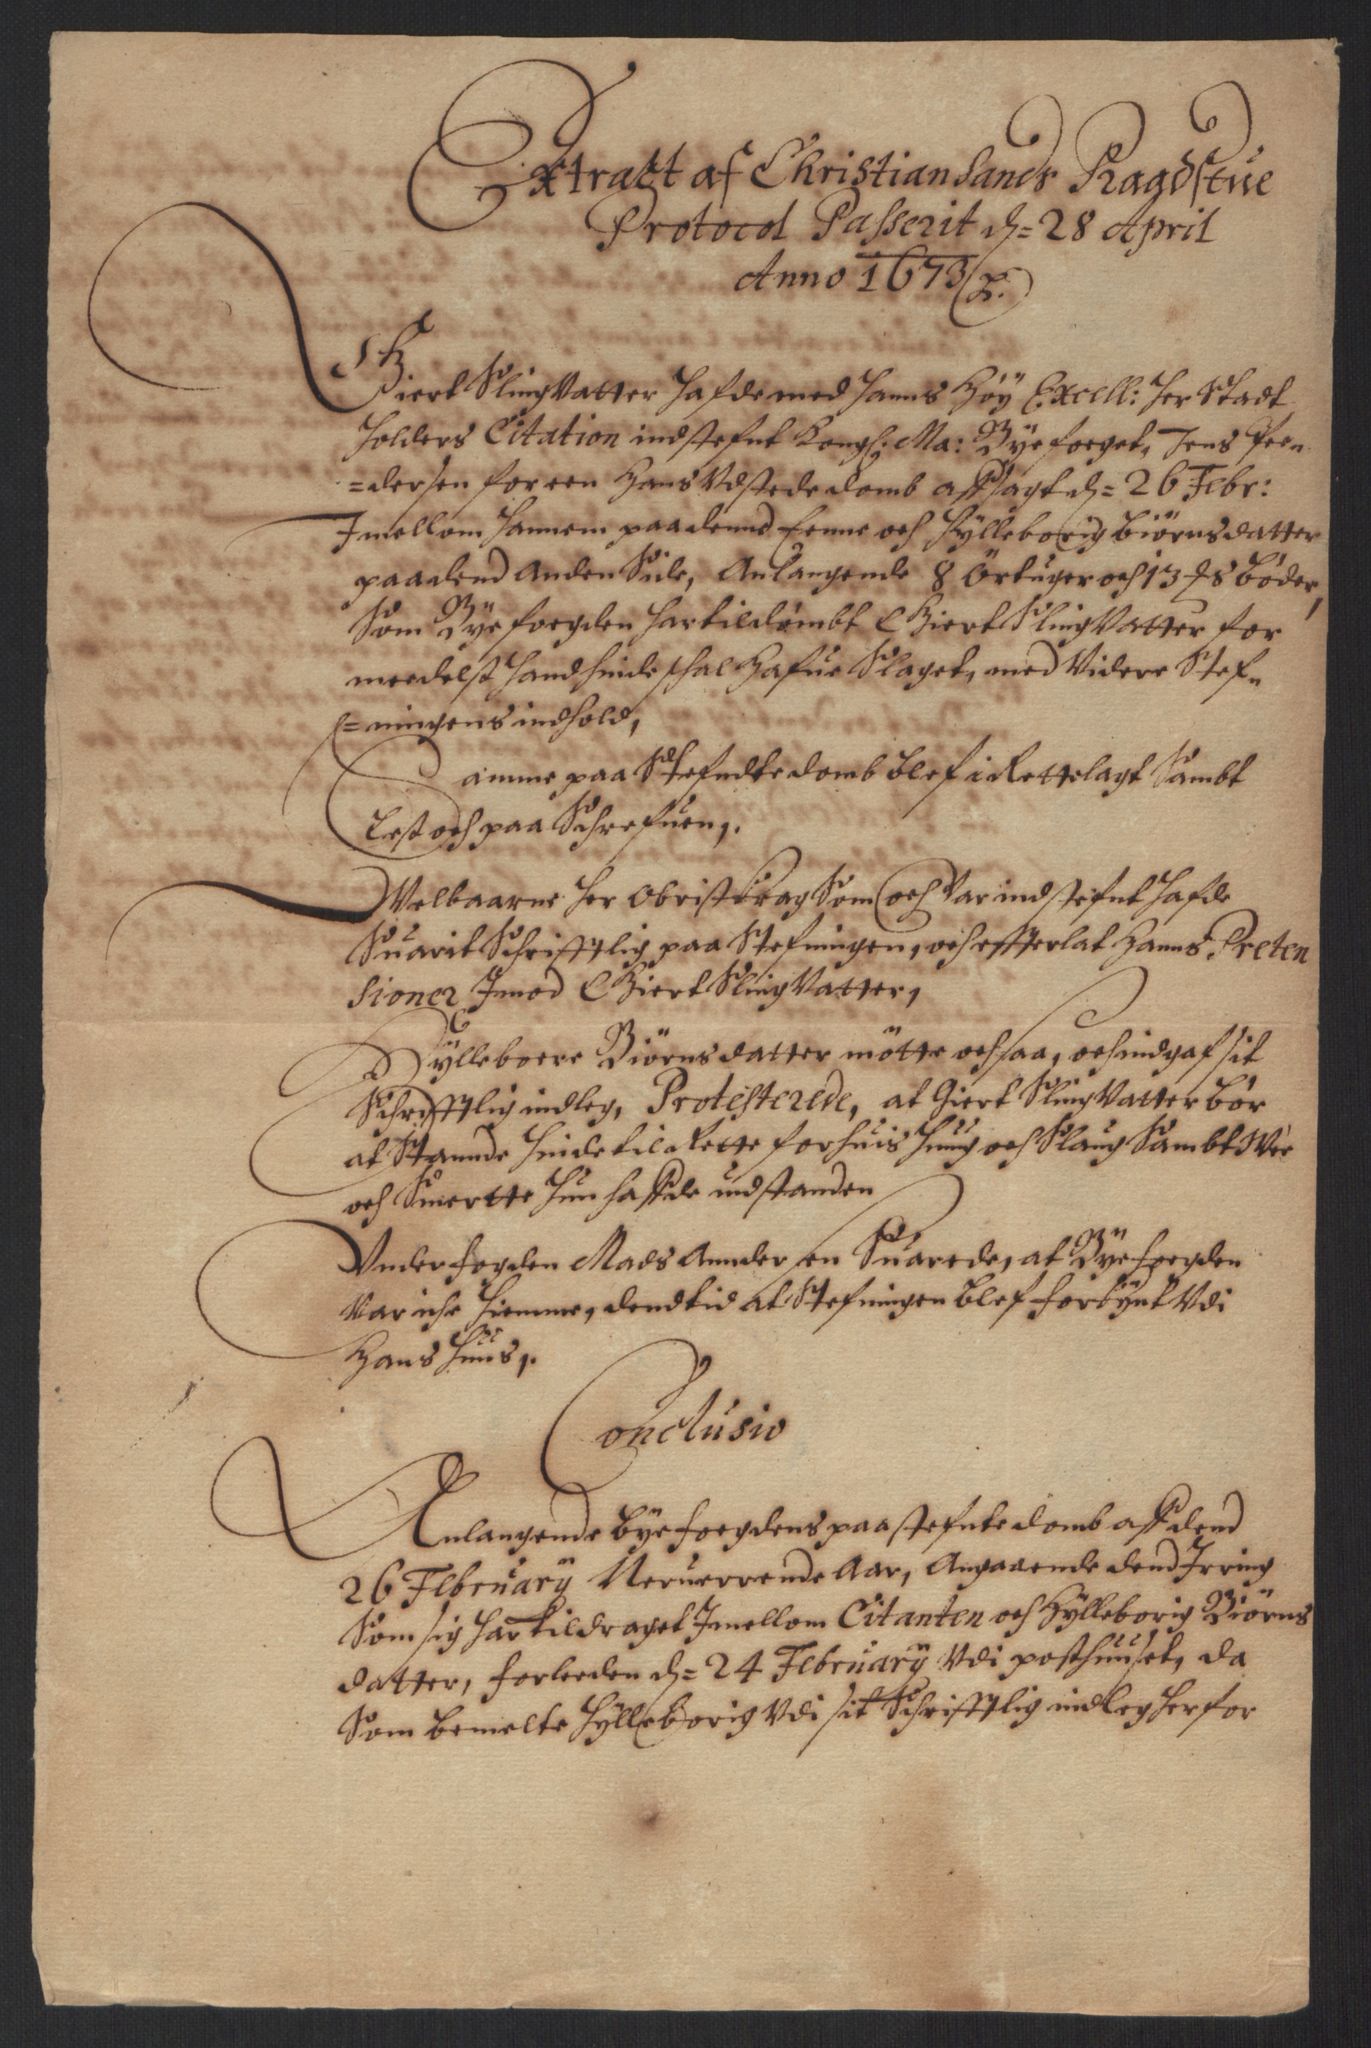 Extract af Christiansands Raadstue
Protocol Passerit d= 28 April
Anno 1673
Giert SlingVatter hafde med Hanns Höy Excell: Her Stadt
holders Citation indstefnt Kongl: Ma: Byefoeget, Jens Peen
=dersen for een Hans Vdstede domb affsagt d= 26 Febr:
Imellom hannem paa dend Eenne och Hylleborig Biörnsdatter
paa dend Anden Side, Anlangende 8 Örtuger och 13 böder,
Som Byefoegden har tildömbt Giert SlingVatter for
meedelst hand hinde schal Hafue Slaget, med Videre Stef=
=ningens indhold,
Samme paa Stefndte domb blef i Rettelagt Sambt
Lest och paa Schrefuen,.
Welbaarne Her Obrist Krag Som och Var indstefnt hafde
Suarit Schrifftlig paa Stefningen, och effterlat Hanns Preten
sioner Imod Giert SlingVatter,
Hylleboere Biörnsdatter mötte och saa, och indgaf sit
Schrifftlig indleg, Protesterede, at Giert SlingVatter bör
at Stannde hinde til Rette for huis hung och Slaug Sambt Wee
och Smertte hun haffde udstanden
Vnderfogden Mads Anndersen Suarede, at Byefoegden
Var iche hiemme, dend tid at Stefningen blef forkÿnt Vdi
Hans Huus,.
Conclusio
Anlangende byefoegdens paastefnte domb aff dend
26 February Neruerrende Aar, Angaaende dend Irring
Som sig har tildraget Imellom Citanten och Hylleborig Biörns
datter, forleeden d= 24 February Vdi posthuuset, da
Som bemelte Hylleborig Vdi sit Schrifftlig indleg herfor